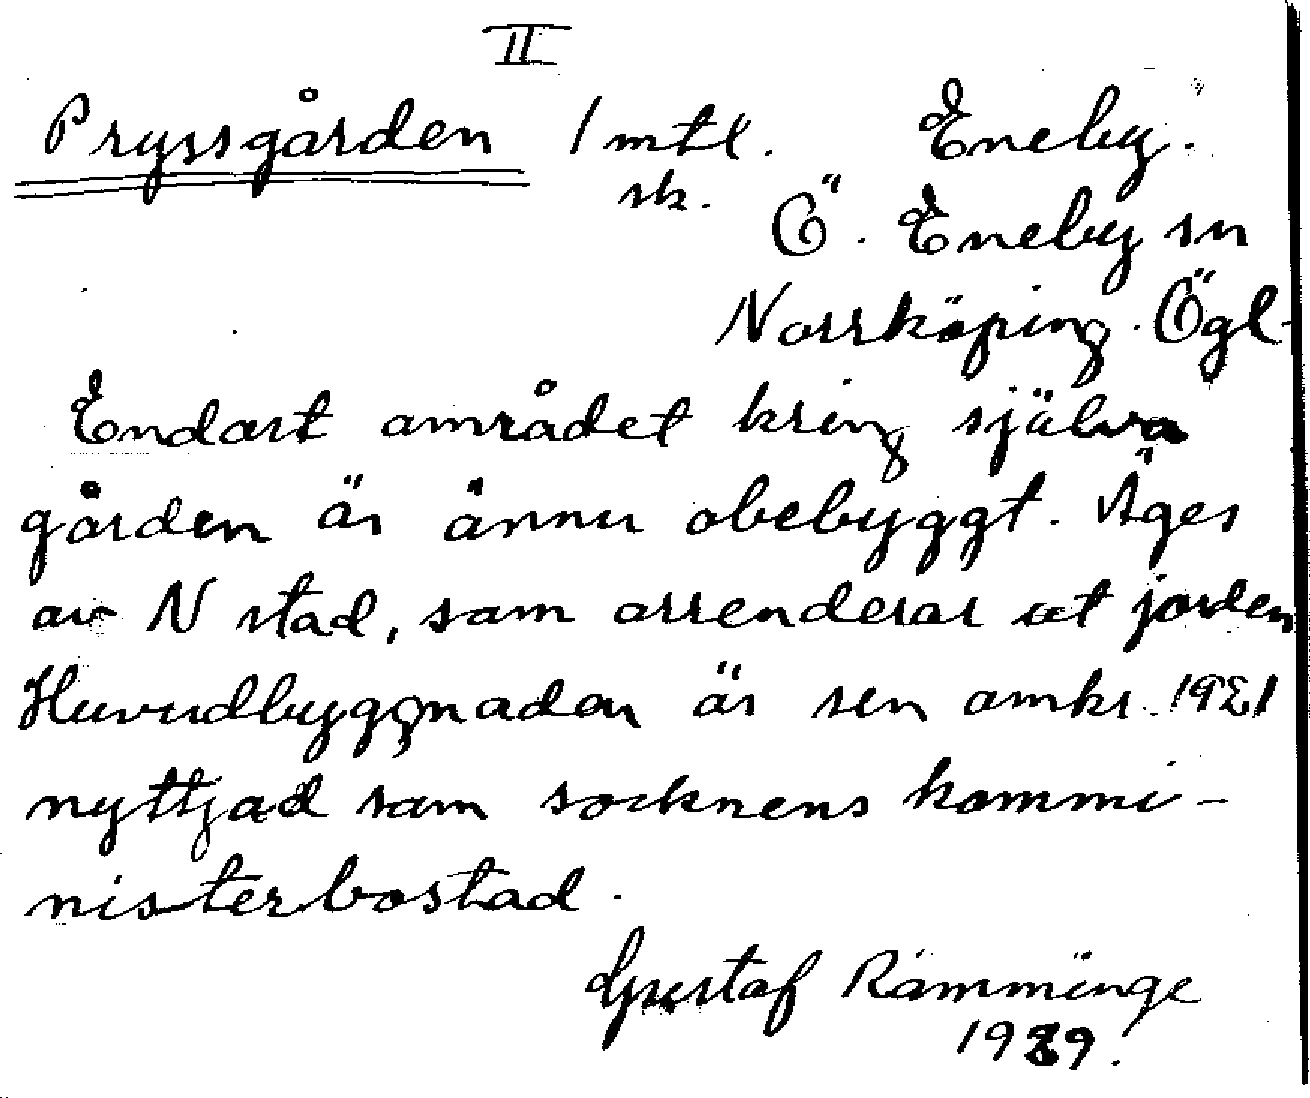 II
Pryssgården 1 mtl. Eneby.
sk.
Ö. Eneby sn
Norrköping. Ögl.
Endast området kring själva
gården är ännu obebyggt. Äges
av N stad, som arrenderar ut jorden
Huvudbyggnaden är sen omkr. 1921
nyttjad som socknens kommi-
nisterbostad.
Gustaf Ramminge